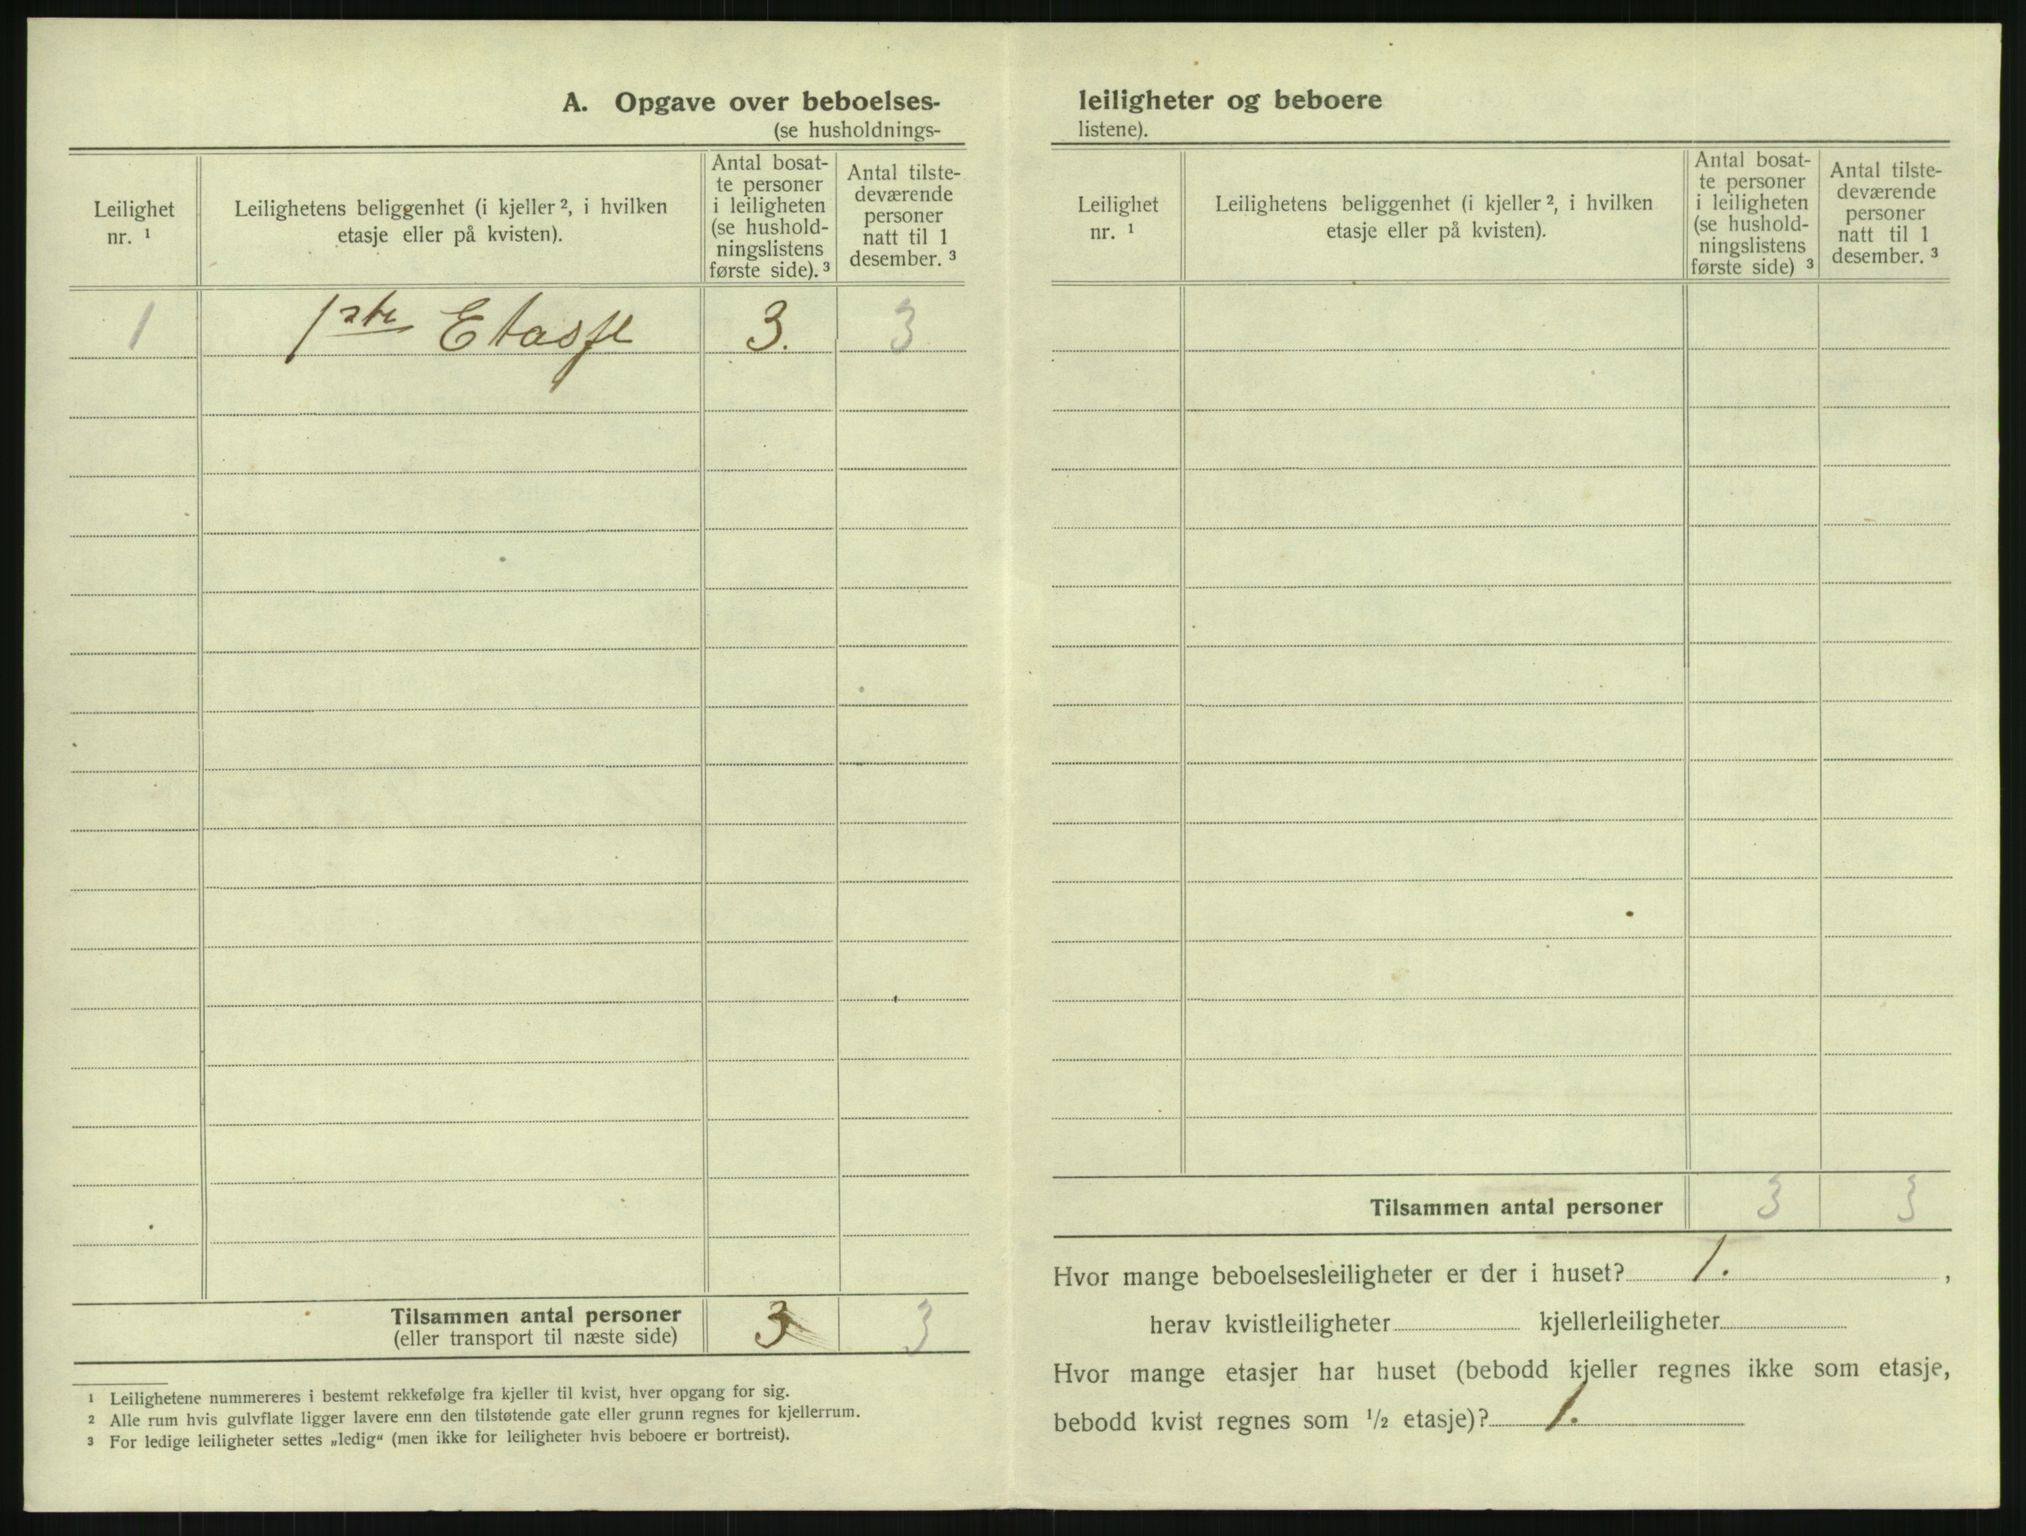 A. Opgave over beboelses-
(se husholdnings-
Leilighet
nr. ¹
Leilighetens beliggenhet (i kjeller ², i hvilken
etasje eller på kvisten).
Antal bosat-
te personer
i leiligheten
(se hushold-
ningslistens
første side). ³
Antal tilste-
deværende
personer
natt til 1
desember. ³
1 1ste Etasje 3. 3
Tilsammen antal personer 3 3
(eller transport til næste side)
¹ Leilighetene nummereres i bestemt rekkefølge fra kjeller til kvist, hver opgang for sig.
² Alle rum hvis gulvflate ligger lavere enn den tilstøtende gate eller grunn regnes for kjellerrum.
³ For ledige leiligheter settes „ledig“ (men ikke for leiligheter hvis beboere er bortreist).
leiligheter og beboere
listene).
Leilighet
nr. ¹
Leilighetens beliggenhet (i kjeller ², i hvilken
etasje eller på kvisten).
Antal bosat-
te personer
i leiligheten
(se hushold-
ningslistens
første side) ³
Antal tilste-
deværende
personer
natt til 1
desember. ³
Tilsammen antal personer 3 3
Hvor mange beboelsesleiligheter er der i huset? 1. ,
herav kvistleiligheter kjellerleiligheter
Hvor mange etasjer har huset (bebodd kjeller regnes ikke som etasje,
bebodd kvist regnes som ½ etasje)? 1.